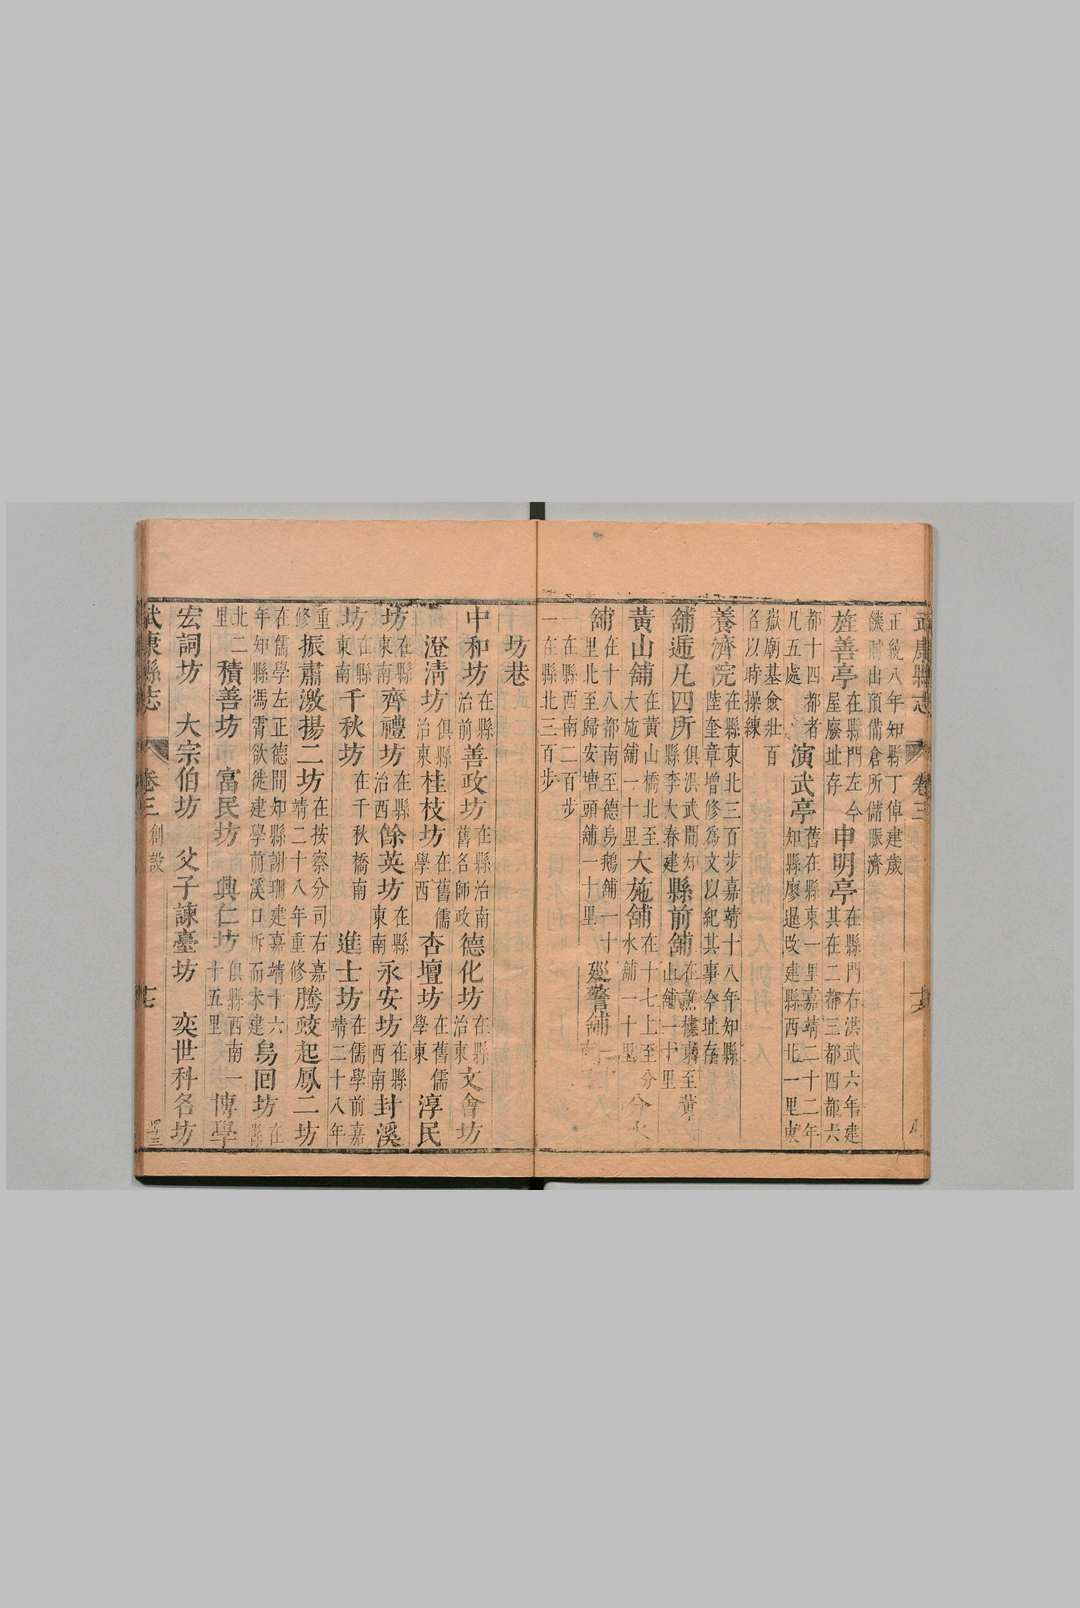 武康縣志 卷三 十六
正統八年知縣丁倬建歲饑則出預備倉所儲賑濟
旌善亭 在縣門左今屋廢址存 申明亭 在縣門右洪武六年建其在二都三都四都六
都十四都者凡五處 演武亭 舊在縣東一里嘉靖二十二年知縣廖暹改建縣西北一里東
嶽廟基僉壯百名以時操練
養濟院 在縣東北三百步嘉靖十八年知縣陸奎章增修為文以紀其事今址存
舖逓凡四所 俱洪武間知縣李大春建 縣前舖 在譙樓東至黃山舖一十里
黃山舖 在黃山橋北至大施舖一十里 大施舖 在十七上至分水舖一十里 分水
舖 在十八都南至德烏鵝舖一十里北至歸安塘頭舖一十里 廵警舖
一在縣西南二百步一在縣北三百步
坊巷
中和坊 在縣治前 善政坊 在縣治南舊名師政 德化坊 在縣治東 文會坊
澄清坊 俱縣治東 桂枝坊 在舊儒學西 杏壇坊 在舊儒學東 淳民
坊 在縣東南 齊禮坊 在縣治西 餘英坊 在縣東南 永安坊 在縣西南 封溪
坊 在縣東南 千秋坊 在千秋橋南 進士坊 在儒學前嘉靖二十八年
重修 振肅激揚二坊 在按察分司右嘉靖二十八年重修 騰蛟起鳳二坊
在儒學左正德間知縣謝珊建嘉靖十六年知縣馮霄欲徙建學前溪口拆而未建 烏囘坊 在縣
北二里 積善坊 富民坊 興仁坊 俱縣西南一十五里 博學
宏詞坊 大宗伯坊 父子諫臺坊 奕世科名坊
武康縣志 卷三 創設 十七